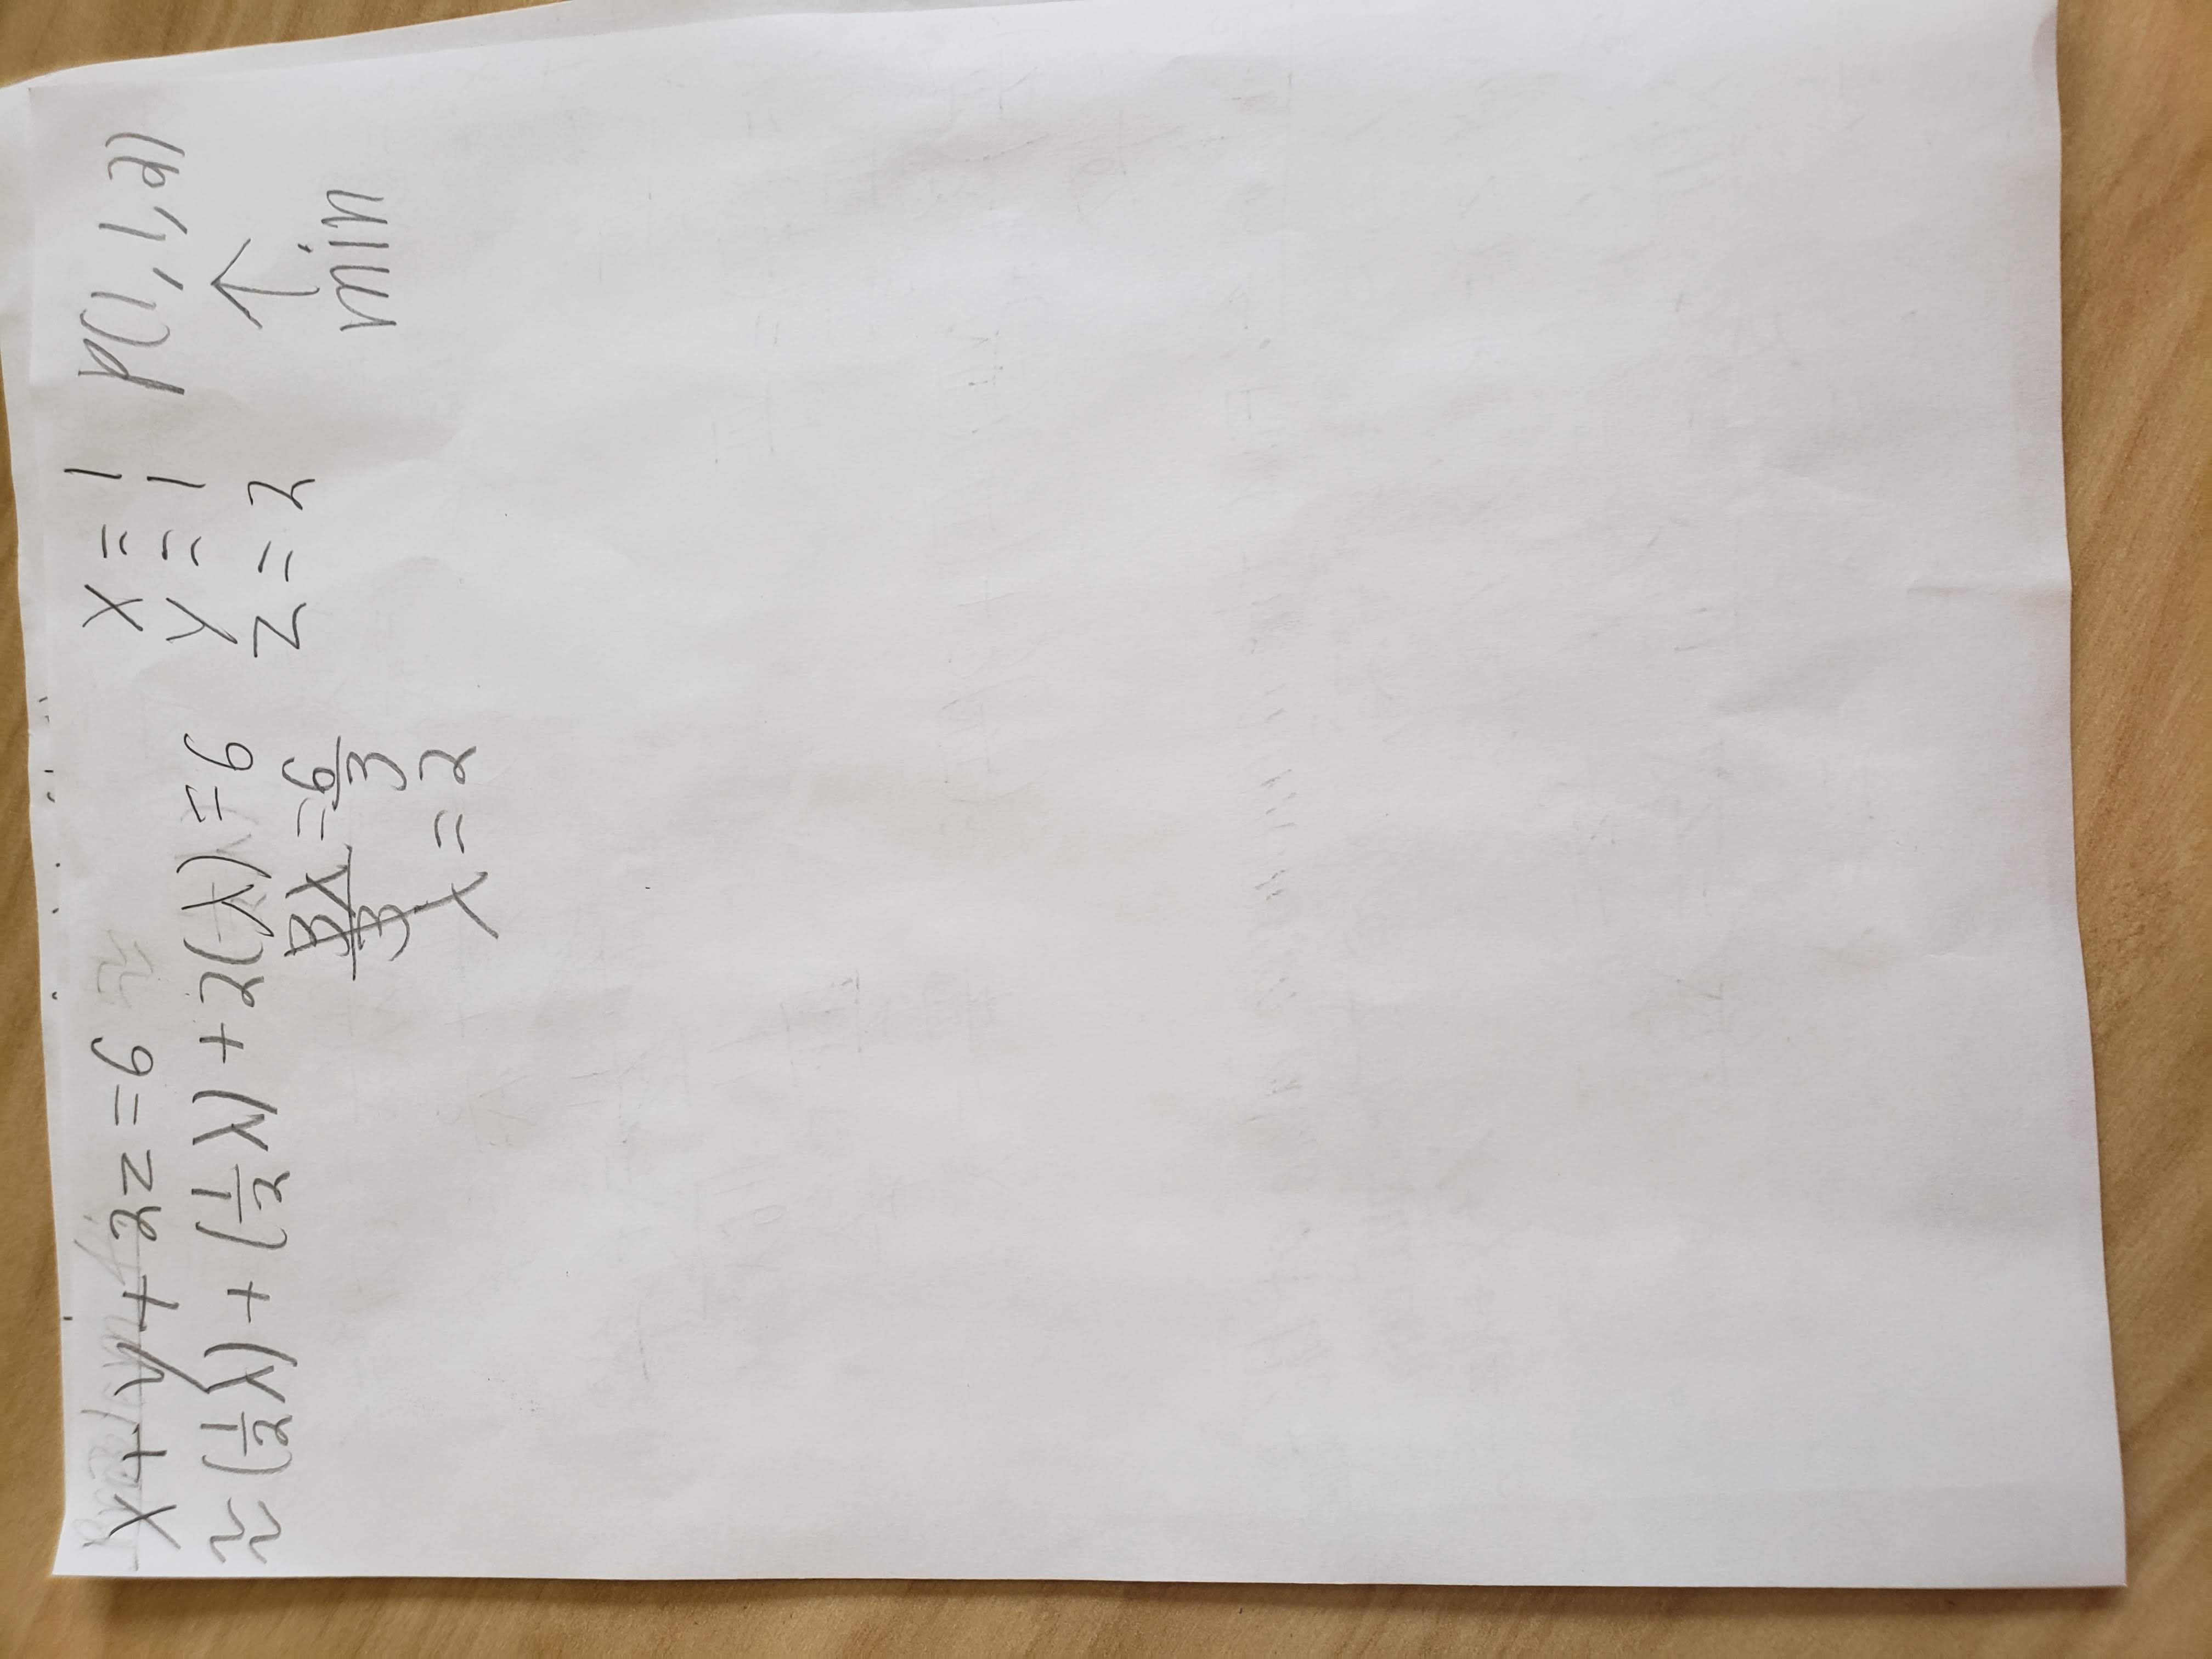 x + y + 2z = 6
≈ (1/2 λ) + (1/2 λ) + 2(λ) = 6
3λ/3 = 6/3
λ = 2
x = 1
y = 1
z = 2
P(1, 1, 2)
↑
min